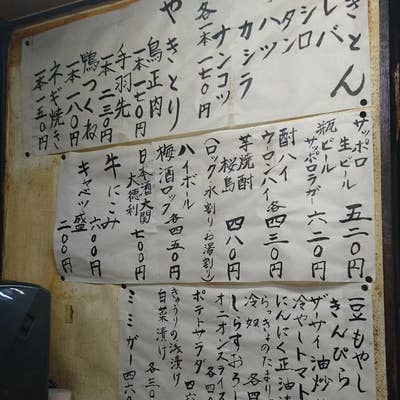 きとん
レバ
シロ
タン
ハツ
カシラ
ナンコツ
各一本一七〇円
やきとり
鳥正肉
一本一七〇円
手羽先
一本二三〇円
鴨つくね
一本一八〇円
ネギ焼き
一本一五〇円
サッポロ
生ビール 五二〇円
瓶ビール
サッポロラガー 六二〇円
酎ハイ
ウーロンハイ 各四三〇円
芋焼酎
桜島 四八〇円
(ロック 水割り お湯割り)
ハイボール
梅酒ロック 各四五〇円
日本酒大関
大徳利 七〇〇円
牛にこみ 六〇〇円
キャベツ盛 二〇〇円
豆もやし
きんぴら
ザーサイ油炒
冷やしトマト
にんにく正油漬
らっきょのたまり
冷奴 各四
しらすおろし
オニオンスライス
ポテトサラダ 各四
きゅうりの浅漬け
白菜漬け 各三〇
ミミガー 四六〇